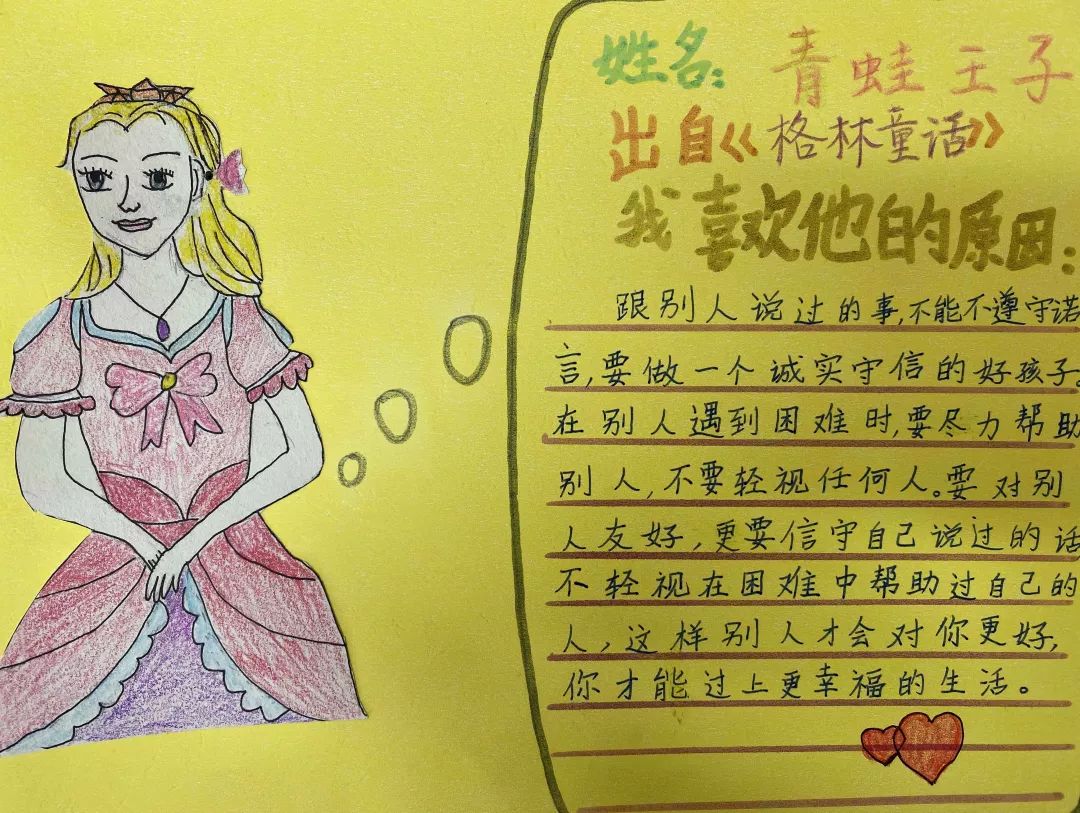 姓名：青蛙王子
出自《格林童话》
我喜欢他的原因：
跟别人说过的事，不能不遵守诺
言，要做一个诚实守信的好孩子。
在别人遇到困难时，要尽力帮助
别人，不要轻视任何人。要对别
人友好，更要信守自己说过的话
不轻视在困难中帮助过自己的
人，这样别人才会对你更好，
你才能过上更幸福的生活。